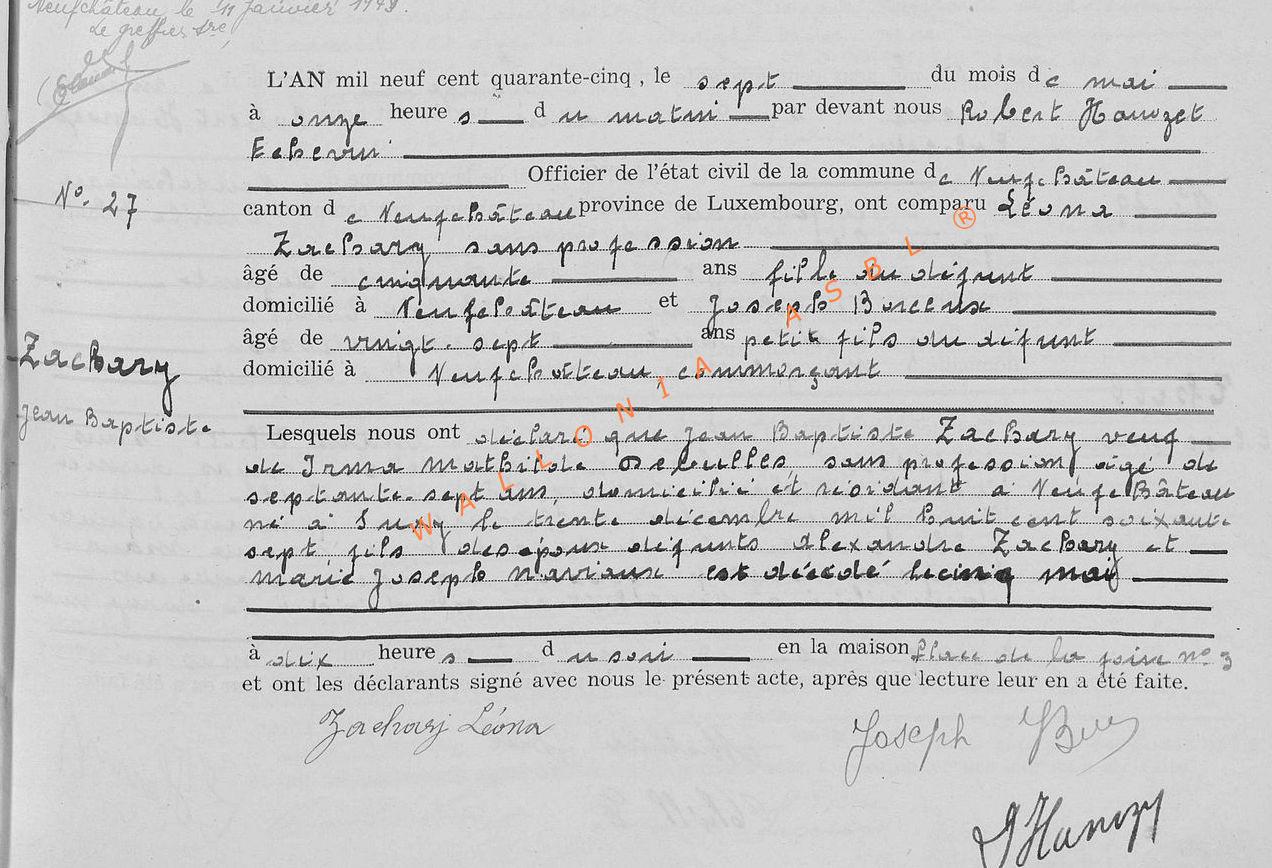 Neufchâteau, le 11 Janvier 1948.
Le greffier
L'AN mil neuf cent quarante-cinq, le sept du mois de mai
à onze heures du matin par devant nous Robert Hanozet
Echevin
Officier de l'état civil de la commune de Neufchâteau
N° 27
canton de Neufchâteau province de Luxembourg, ont comparu Léona
Zachary sans profession
âgé de cinquante ans fille du défunt
domicilié à Neufchâteau et Joseph Burceux
âgé de vingt-sept ans petit fils du défunt
domicilié à Neufchâteau commerçant
Zachary
Jean Baptiste
Lesquels nous ont déclaré que Jean Baptiste Zachary veuf
de Irma Mathilde sans profession âgé de
septante-sept ans, domicilié et résidant à Neufchâteau
né à Sury le trente décembre mil huit cent soixante
sept fils des époux défunts Alexandre Zachary et
Marie Joseph est décédé le cinq mai
à dix heures du soir en la maison Place de la foire n° 3
et ont les déclarants signé avec nous le présent acte, après que lecture leur en a été faite.
Zachary Léona
Joseph
WALLONIA ASBL ®